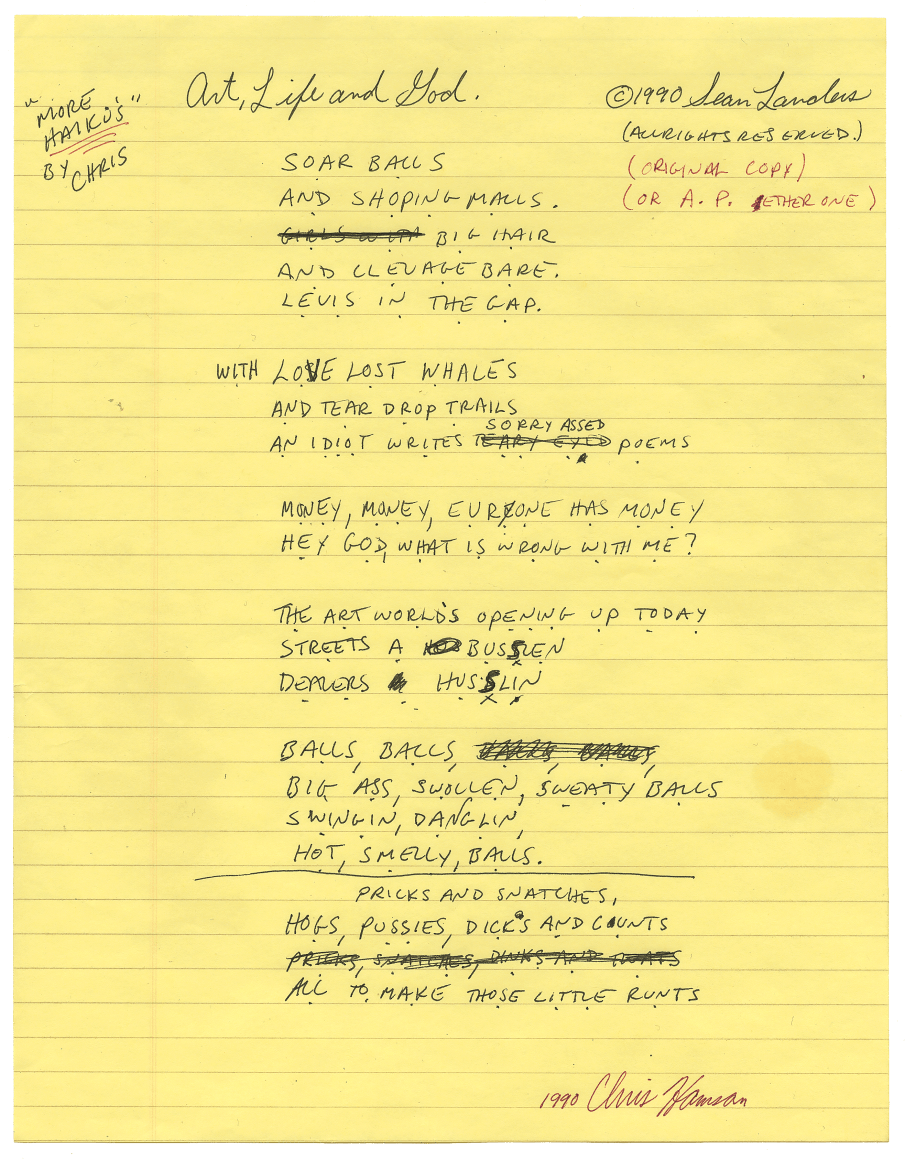 "MORE HAIKU'S"
BY CHRIS
Art, Life and God.
©1990 Sean Landers
(ALL RIGHTS RESERVED.)
(ORIGINAL COPY)
(OR A.P. ETHER ONE)
SOAR BALLS
AND SHOPING MALLS.
GIRLS WITH BIG HAIR
AND CLEVAGE BARE.
LEVIS IN THE GAP.
WITH LOVE LOST WHALES
AND TEAR DROP TRAILS
SORRY ASSED
AN IDIOT WRITES TEARY EYED POEMS
MONEY, MONEY, EVRYONE HAS MONEY
HEY GOD, WHAT IS WRONG WITH ME?
THE ART WORLD'S OPENING UP TODAY
STREETS A BUSSLEN
DEALERS HUSSLIN
BALLS, BALLS,
BIG ASS, SWOLLEN, SWEATY BALLS
SWINGIN, DANGLIN,
HOT, SMELLY, BALLS.
PRICKS AND SNATCHES,
HOGS, PUSSIES, DICK'S AND COUNTS
PRICKS, SNATCHES, DINKS AND TWATS
ALL TO MAKE THOSE LITTLE RUNTS
1990 Chris Hamson